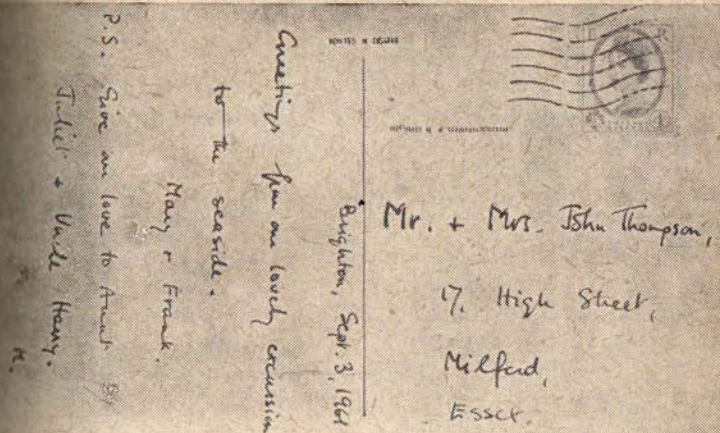 Brighton, Sept. 3, 1961
Greetings from our lovely excursion
to the seaside.
Mary + Frank.
P.S. Give our love to Aunt
Juliet + Uncle Harry.
M.
E R
Mr. + Mrs. John Thompson,
17, High Street,
Milford,
Essex.